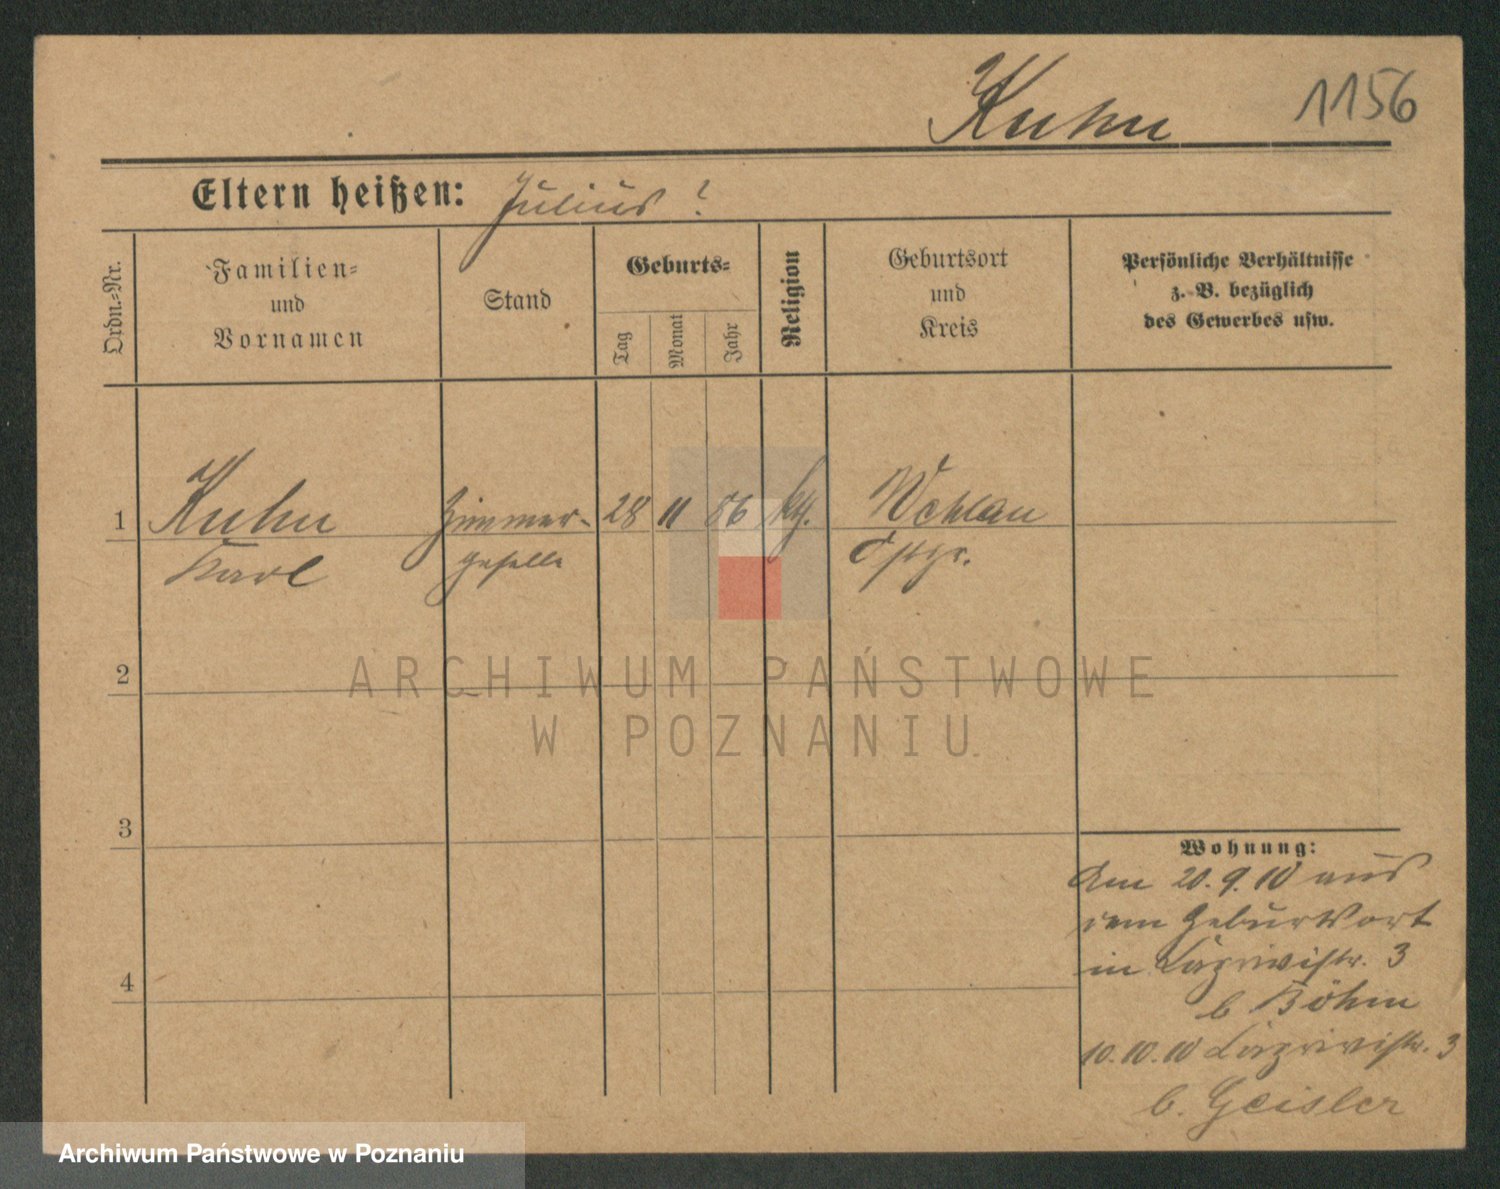 Kuhn
1156
Eltern heißen: Julius ?
Ordn.-Nr.
Familien-
und
Vornamen
Stand
Geburts-
Tag
Monat
Jahr
Religion
Geburtsort
und
Kreis
Persönliche Verhältnisse
z. B. bezüglich
des Gewerbes usw.
1
Kuhn
Karl
Zimmer-
geselle
28
11
86
Wehlau
Ostpr.
2
3
4
Wohnung:
Am 20.9.10 aus
dem Geburtsort
in 3
b Böhm
10.10.10 3
b. Geisler
ARCHIWUM PAŃSTWOWE
W POZNANIU
Archiwum Państwowe w Poznaniu